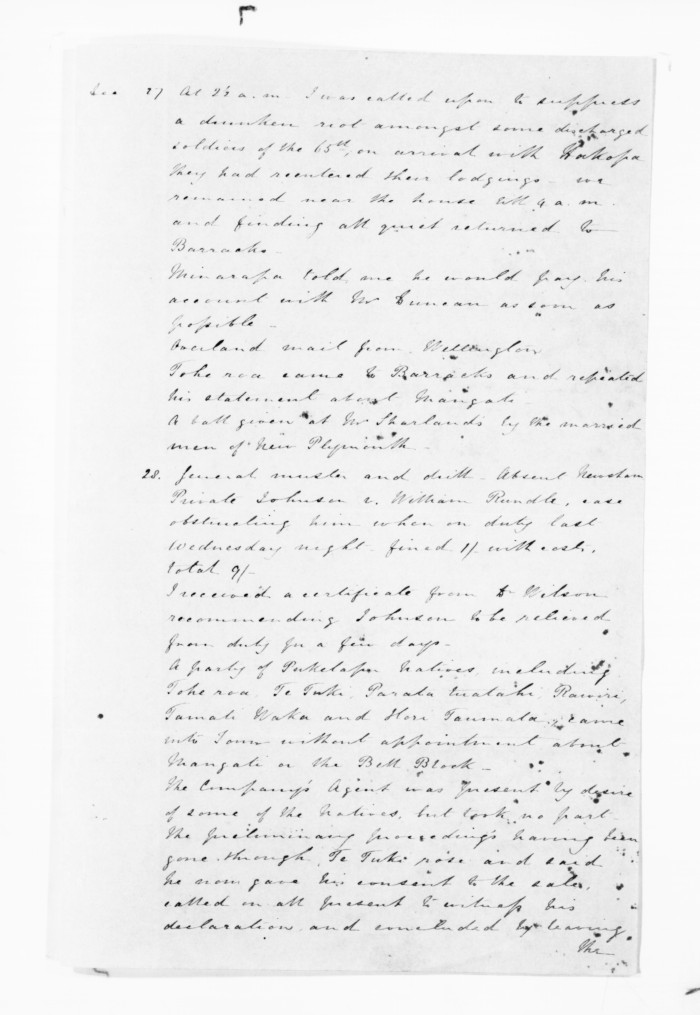 Dec 27 At 2½ a.m. I was called upon to suppress
a drunken riot amongst some discharged
soldiers of the 65th, on arrival with Hakopa
they had reentered their lodgings - we
remained near the house till 4 a.m.
and finding all quiet returned to
Barracks -
Minarapa told me he would pay his
account with Mr Duncan as soon as
possible -
Overland mail from Wellington
Tohe roa came to Barracks and repeated
his statement about Mangati -
A ball given at Mr Sharland's by the married
men of New Plymouth -
28. General muster and drill - Absent Newsham
Private Johnson v. William Rundle, case
obstructing him when on duty last
Wednesday night - fined 1/ with costs,
total 9/-
I received a certificate from Dr Wilson
recommending Johnson to be relieved
from duty for a few days -
A party of Puketapu Natives including
Tohe roa, Te Tuki, Parata Watahi, Rawiri,
Tamati Waka and Hori Taumata, came
into Town without appointment about
Mangati or the Bell Block -
The Company's Agent was present by desire
of some of the Natives, but took no part
The preliminary proceedings having been
gone through, Te Tuki rose and said
he now gave his consent to the sale,
called on all present to witness his
declaration and concluded by leaving
the